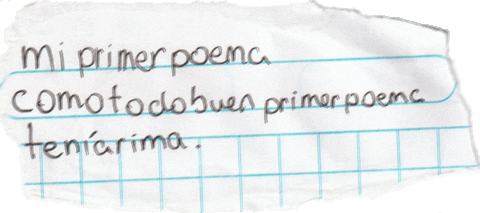 mi primer poema
como todo buen primer poema
tenía rima.